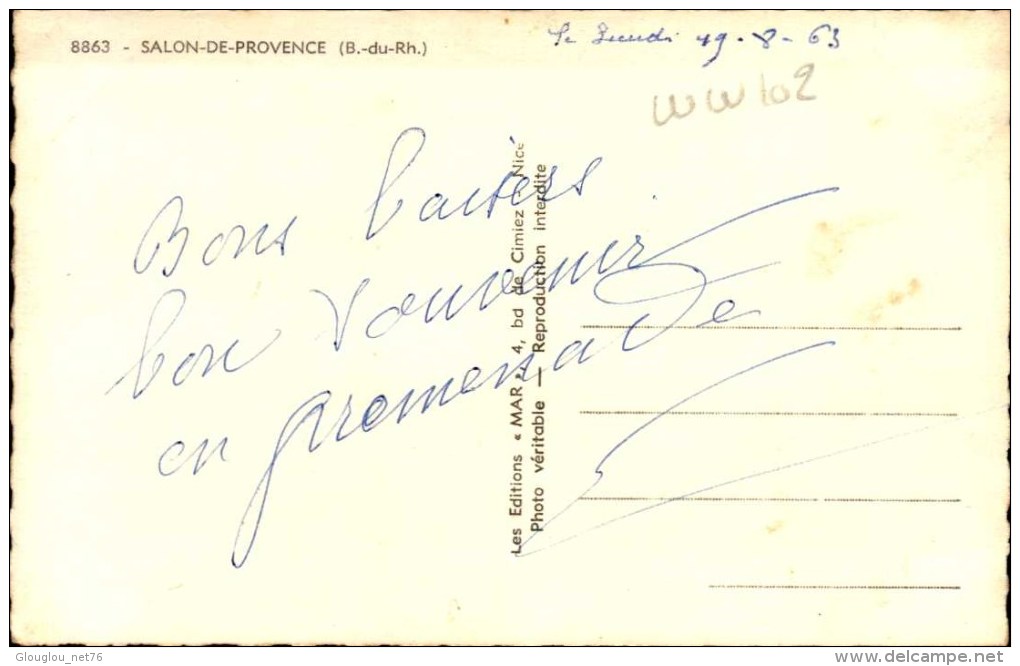 8863 - SALON-DE-PROVENCE (B.-du-Rh.)
Le Lundi 19-8-63
WW102
Bons baisers
bon souvenir
en promenade
Les Editions « MAR », 4, bd de Cimiez - Nice
Photo véritable — Reproduction interdite
Glouglou_net76
delcampe.net